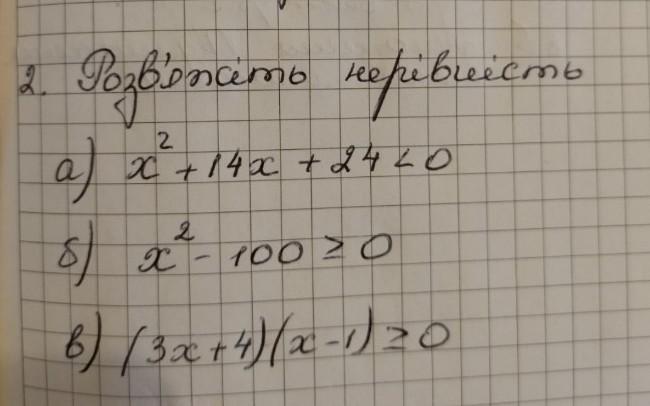 2. Розв'яжіть нерівність
а) x² + 14x + 24 < 0
б) x² - 100 ≥ 0
в) (3x + 4)(x - 1) ≥ 0